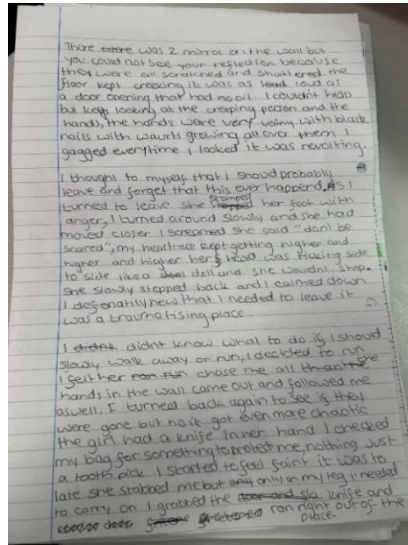 There was 2 mirror on the wall but
you could not see your reflexion because
they were all scratched and shuttered the
floor kept creeking it was as loud as
a door opening that had no oil. I couldn't help
but keep looking at the creeping person and the
hands, the hands were very vainy with black
nails with waurts growing all over them I
gagged everytime I looked it was revolting.
I thought to myself that I should probably
leave and forget that this ever happend. As I
turned to leave she stomped her foot with
anger, I turned around slowly and she had
moved closer I screamed she said "don't be
scared", my heartrace kept getting higher and
higher and higher her head was flaking side
to side like a doll and she wouldn't stop.
She slowly stepped back and I calmed down
I defenatily new that I needed to leave it
was a traumatising place.
I didnt know what to do if I should
slowy walk away or run, I decided to run
I felt her chase me all the
hands in the wall came out and followed me
aswell. I turned back again to see if they
were gone but no it got even more chaotic
the girl had a knife in her hand I checked
my bag for something to protest me, nothing just
a tooth pick I started to feel faint it was to
late she stabbed me but only in my leg i needed
to carry on I grabbed the knife and
ran right out of the
place.